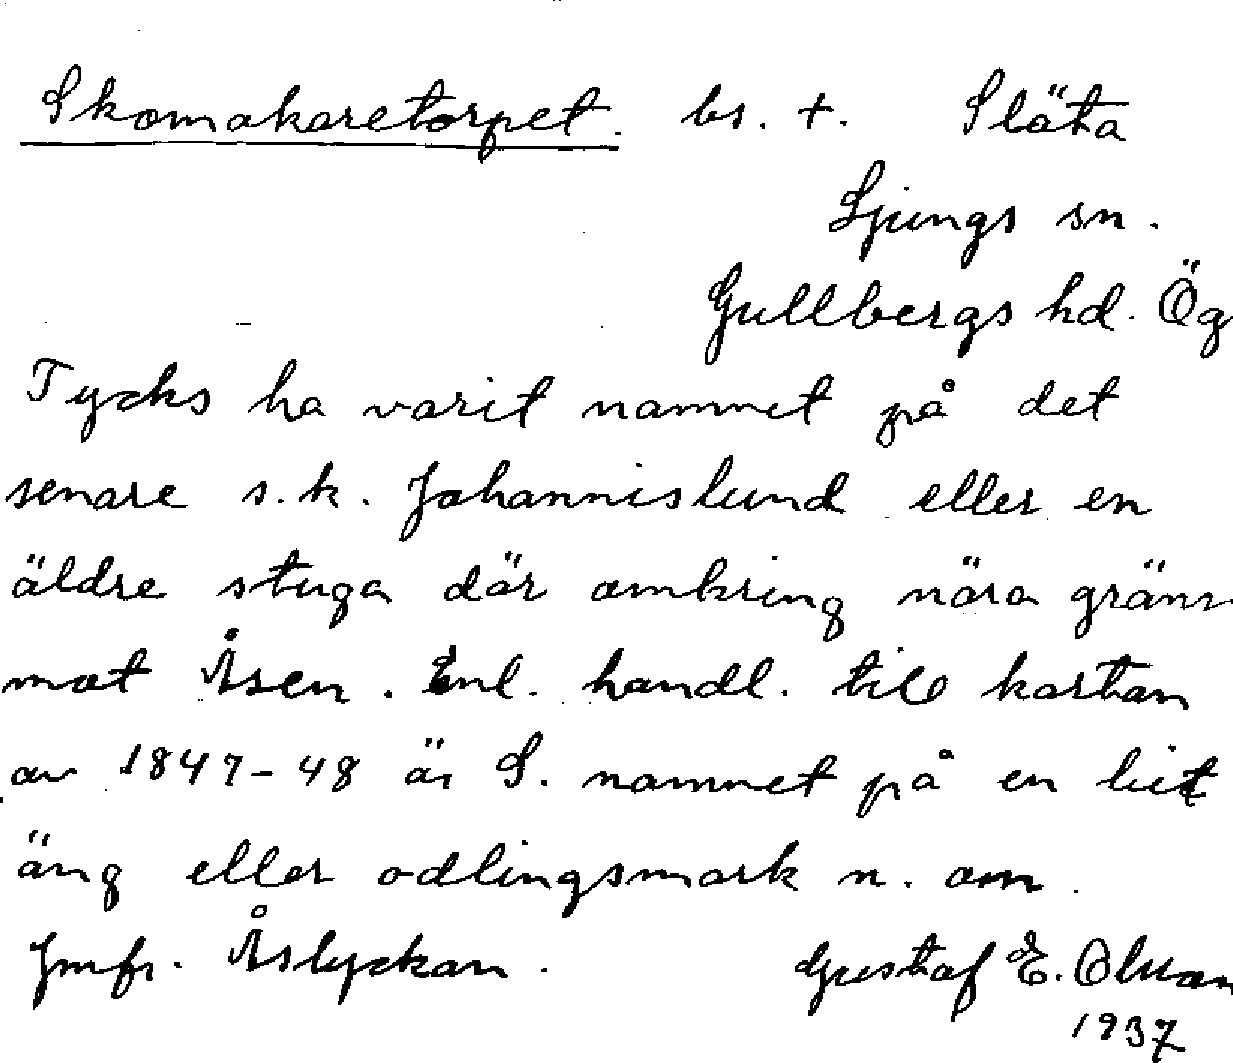 Skomakaretorpet. bs. +. Släta
Ljungs sn.
Gullbergs hd. Ög
Tycks ha varit namnet på det
senare s.k. Johannislund eller en
äldre stuga där omkring nära gräns
mot Åsen. Enl. handl. till kartan
av 1847-48 är S. namnet på en bit
äng eller odlingsmark n. om.
Jmfr. Åslyckan. Gustaf E. Olsson
1937